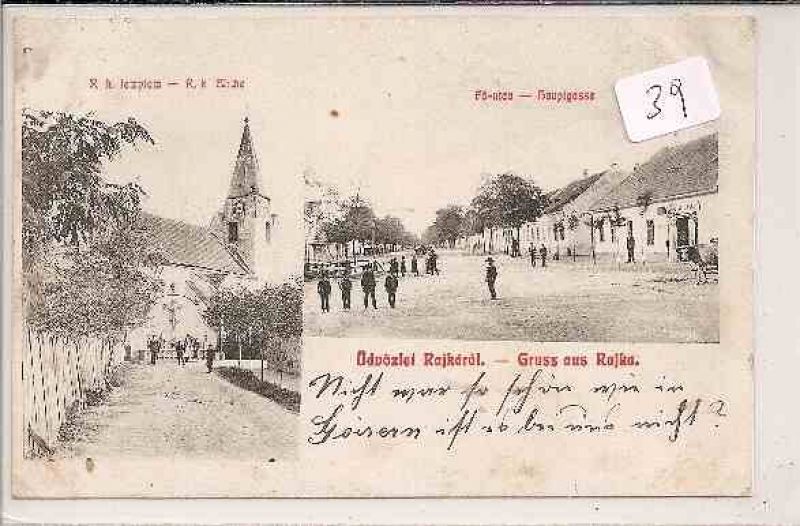 R. k. templom — R. k. Kirche
Fő-utca — Hauptgasse
39
Üdvözlet Rajkáról. — Gruss aus Rajka.
Nicht war so schön wie in
Goisern ist es bei uns nicht?